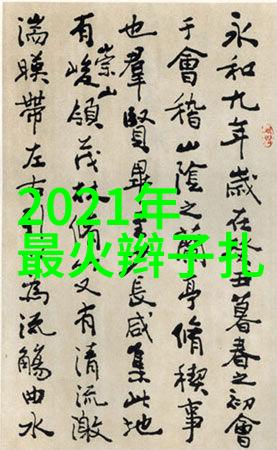 2021年
最火辫子扎
永和九年歲在丑暮春之初會
于會稽山陰之蘭亭脩稧事
也羣賢畢長咸集此地
有崇山峻領茂林脩又有清流激
湍暎帶左右為流觴曲水